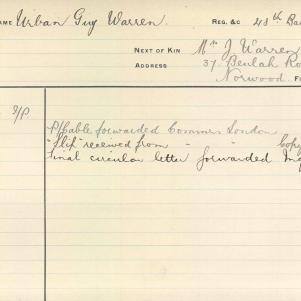 NAME Urban Guy Warren. REG. &C 48th Ba
NEXT OF KIN Mr J Warren
ADDRESS 37 Beulah Ro
Norwood. F
P/P
P/P Cable forwarded Commrs London
"Slip" received from " " Copy
Final circular letter forwarded